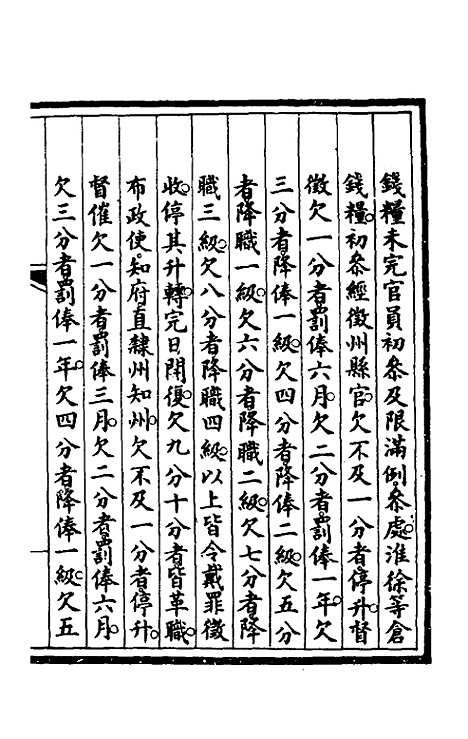 錢糧未完官員初叅及限滿例叅處。淮徐等倉
錢糧。初叅經徵州縣官。欠不及一分者停升。督
徵欠一分者罰俸六月。欠二分者罰俸一年。欠
三分者降俸一級。欠四分者降俸二級。欠五分
者降職一級。欠六分者降職二級。欠七分者降
職三級。欠八分者降職四級。以上皆令戴罪徵
收。停其升轉。完日開復。欠九分十分者皆革職。
布政使知府直隸州知州。欠不及一分者停升。
督催欠一分者罰俸三月。欠二分者罰俸六月。
欠三分者罰俸一年。欠四分者降俸一級。欠五